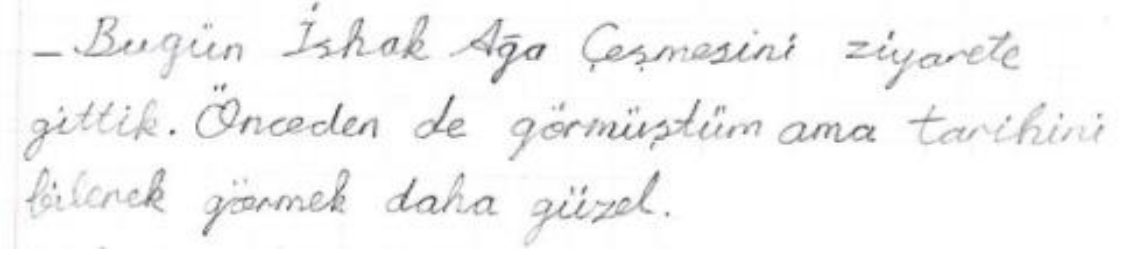 - Bugün İshak Ağa Çeşmesini ziyarete
gittik. Önceden de görmüştüm ama tarihini
bilerek görmek daha güzel.